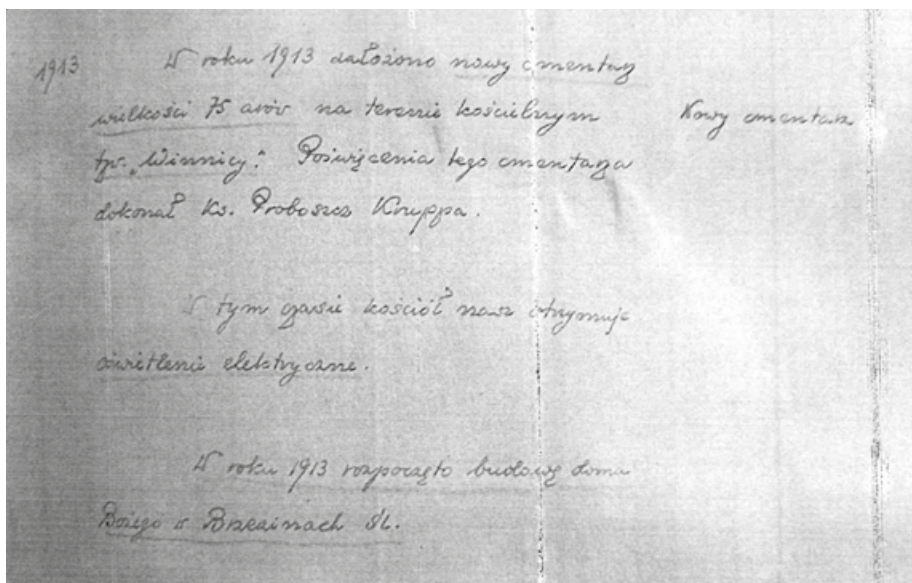 1913 W roku 1913 założono nowy cmentarz
wielkości 75 arów na terenie kościelnym Nowy cmentarz
tzw. „Winnicy". Poświęcenia tego cmentarza
dokonał Ks. Proboszcz Kruppa.
W tym czasie kościół nasz otrzymuje
oświetlenie elektryczne.
W roku 1913 rozpoczęto budowę domu
Bożego w Brzezinach Śl.